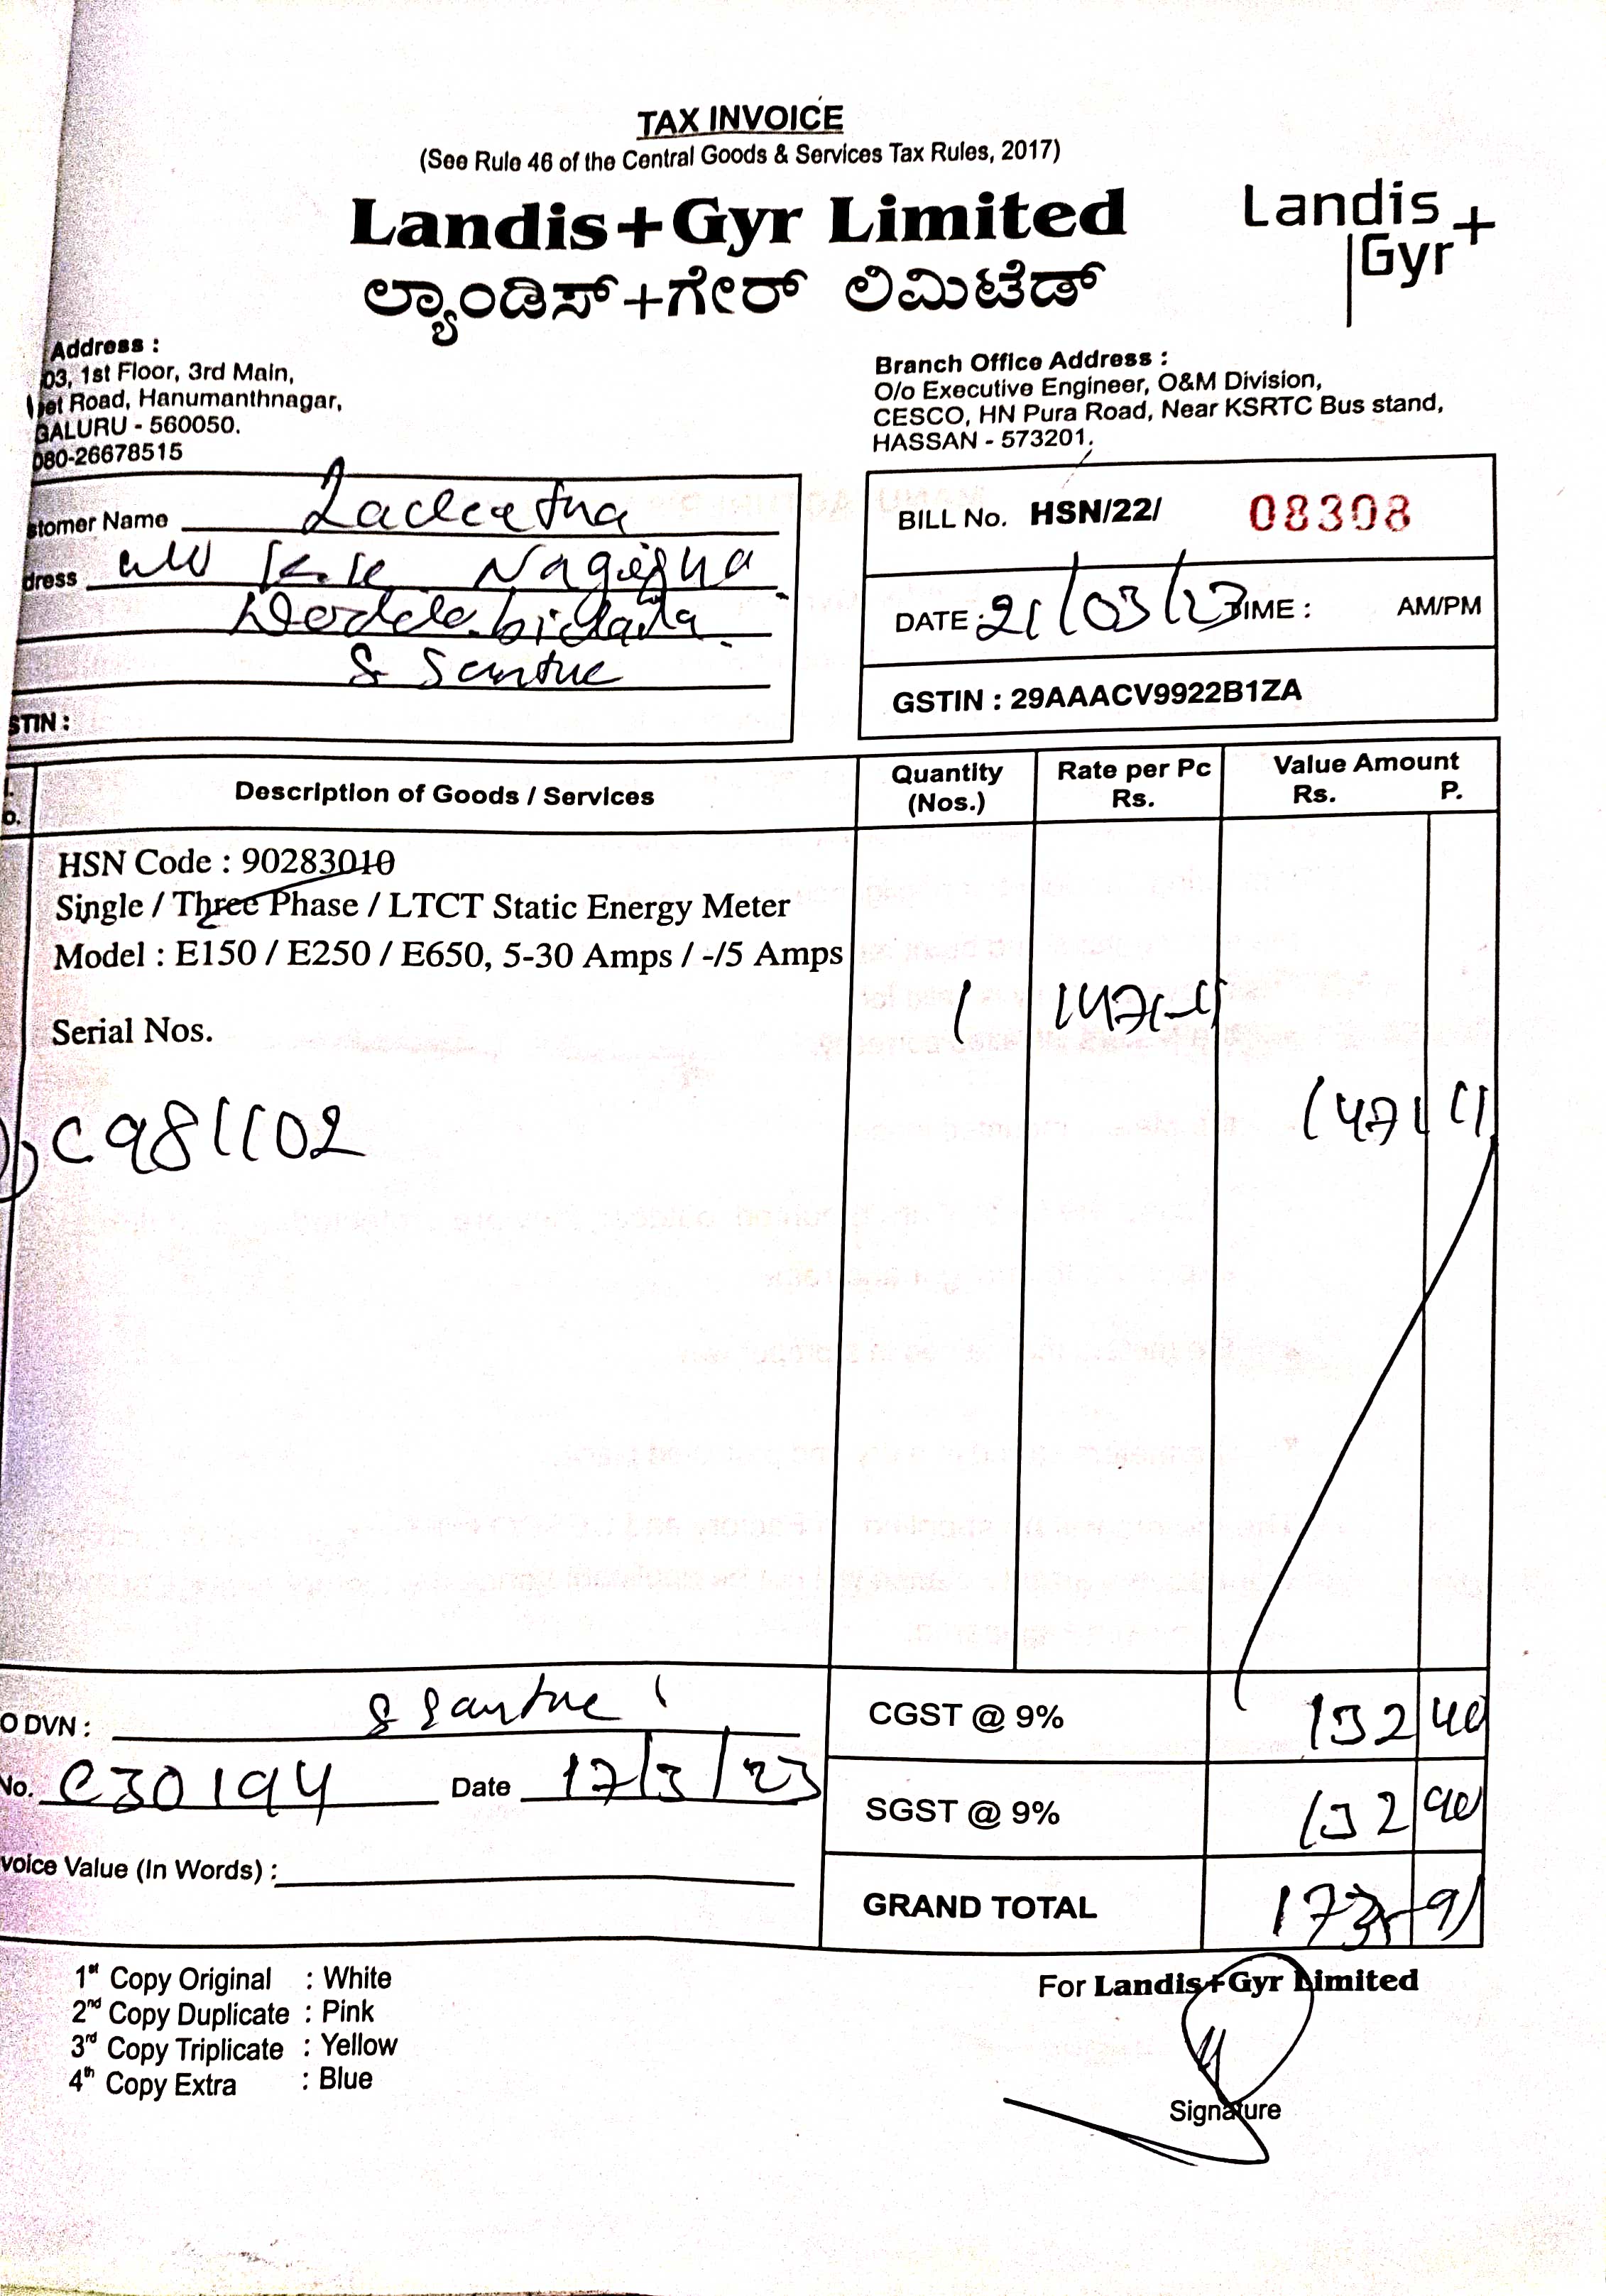 TAX INVOICE
(See Rule 46 of the Central Goods & Services Tax Rules, 2017)
Landis+Gyr Limited
ಲ್ಯಾಂಡಿಸ್+ಗೇರ್ ಲಿಮಿಟೆಡ್
Landis
Gyr+
Address :
03, 1st Floor, 3rd Main,
Road, Hanumanthnagar,
GALURU - 560050.
080-26678515
Branch Office Address :
O/o Executive Engineer, O&M Division,
CESCO, HN Pura Road, Near KSRTC Bus stand,
HASSAN - 573201.
stomer Name
dress
STIN :
BILL No. HSN/22/ 08308
DATE : 21/03/23 TIME : AM/PM
GSTIN : 29AAACV9922B1ZA
Description of Goods / Services
Quantity (Nos.)
Rate per Pc Rs.
Value Amount Rs. P.
HSN Code : 90283010
Single / Three Phase / LTCT Static Energy Meter
Model : E150 / E250 / E650, 5-30 Amps / -/5 Amps
Serial Nos.
1 1471-11
1471 11
C981102
O DVN :
CGST @ 9% 132 40
No. C30194 Date 17/3/23
SGST @ 9% 132 40
voice Value (In Words) :
GRAND TOTAL
1st Copy Original : White
2nd Copy Duplicate : Pink
3rd Copy Triplicate : Yellow
4th Copy Extra : Blue
For Landis+Gyr Limited
Signature